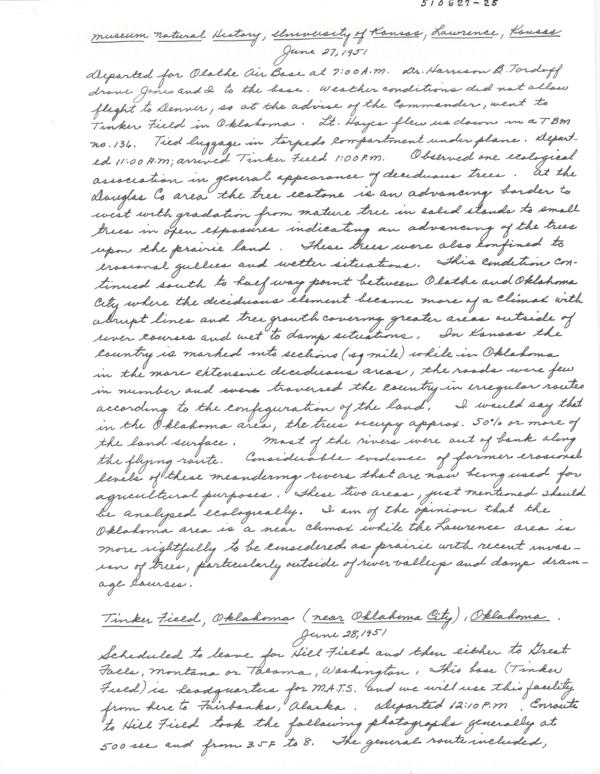 510627-25
Museum Natural History, University of Kansas, Lawrence, Kansas
June 27, 1951
Departed for Olathe Air Base at 7:00 A.M. Dr. Harrison B. Tordoff
drove Jones and I to the base. Weather conditions did not allow
flight to Denver, so at the advise of the Commander, went to
Tinker Field in Oklahoma. Lt. Hayes flew us down in a TBM
no. 136. Tied luggage in torpedo compartment under plane. Depart-
ed 11:00 A.M; arrived Tinker Field 1:00 P.M. Observed one ecological
association in general appearance of deciduous trees. At the
Douglas Co area the tree ecotone is an advancing border to
west with gradation from mature tree in solid stands to small
trees in open exposures indicating an advancing of the trees
upon the prairie land. These trees were also confined to
erosional gullies and wetter situations. This condition con-
tinued south to half way point between Olathe and Oklahoma
City where the deciduous element became more of a climax with
abrupt lines and tree growth covering greater areas outside of
river courses and wet to damp situations. In Kansas the
country is marked into sections (sq mile) while in Oklahoma
in the more extensive deciduous areas, the roads were few
in number and traversed the country in irregular routes
according to the configuration of the land. I would say that
in the Oklahoma area, the trees occupy approx. 50% or more of
the land surface. Most of the rivers were out of bank along
the flying route. Considerable evidence of former erosional
levels of these meandering rivers that are now being used for
agricultural purposes. These two areas, just mentioned should
be analyzed ecologically. I am of the opinion that the
Oklahoma area is a near climax while the Lawrence area is
more rightfully to be considered as prairie with recent invas-
ion of trees, particularly outside of river valleys and damp drain-
age courses.
Tinker Field, Oklahoma (near Oklahoma City), Oklahoma.
June 28, 1951
Scheduled to leave for Hill Field and then either to Great
Falls, Montana or Tacoma, Washington. This base (Tinker
Field) is headquarters for M.A.T.S. and we will use this facility
from here to Fairbanks, Alaska. Departed 12:10 P.M. Enroute
to Hill Field took the following photographs generally at
500 sec and from 3.5F to 8. The general route included,